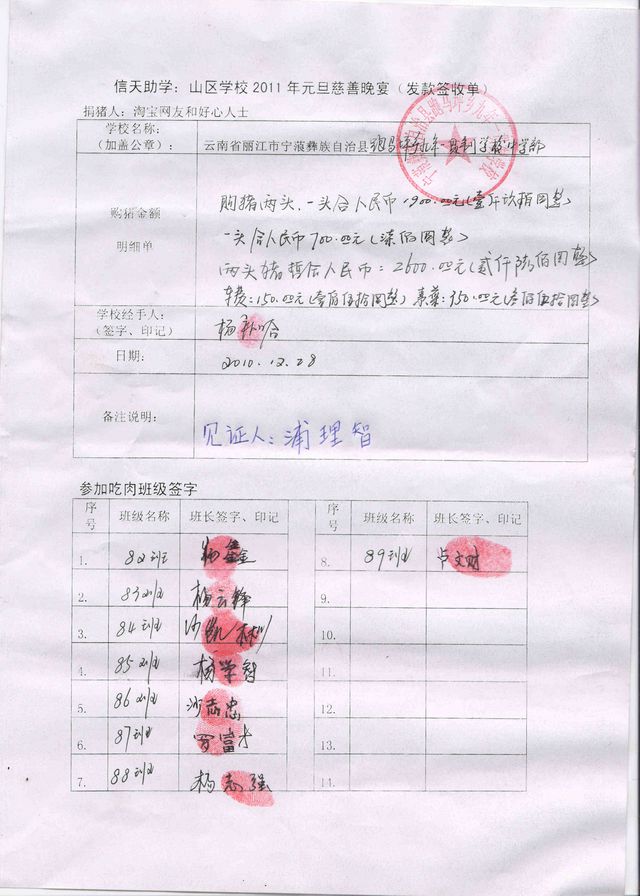 信天助学：山区学校2011年元旦慈善晚宴（发款签收单）
捐猪人：淘宝网友和好心人士
学校名称：
（加盖公章）：
云南省丽江市宁蒗彝族自治县跑马坪乡九年一贯制学校中学部
购猪金额
明细单
购猪两头，一头合人民币1900.00元(壹仟玖佰圆整)
一头合人民币700.00元(柒佰圆整)
两头猪暂合人民币：2600.00元(贰仟陆佰圆整)
150.00元(壹佰伍拾圆整)
学校经手人：
（签字、印记）
杨
日期：
2010.12.28
备注说明：
见证人：浦理智
参加吃肉班级签字
序号 班级名称 班长签字、印记 序号 班级名称 班长签字、印记
1. 82班 杨鑫 8. 89班 卢文财
2. 83班 杨云锋 9.
3. 84班 沙凯 10.
4. 85班 杨学智 11.
5. 86班 沙志忠 12.
6. 87班 罗富才 13.
7. 88班 杨志强 14.